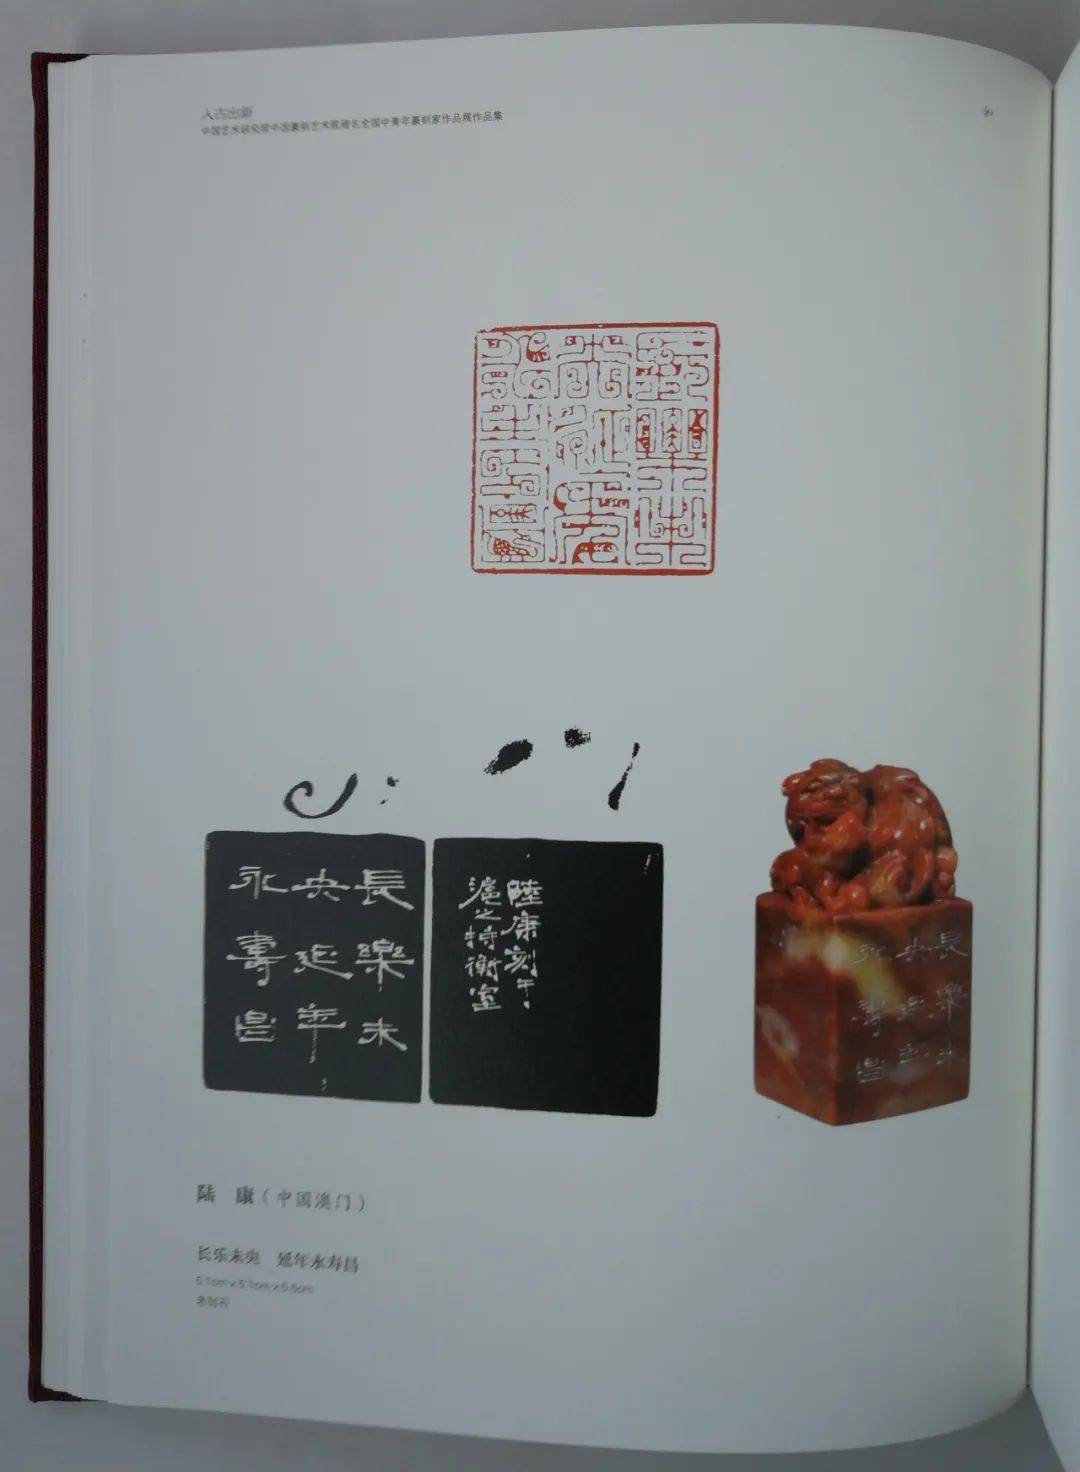 入古出新
中国艺术研究院中国篆刻艺术院提名全国中青年篆刻家作品展作品集
長樂未
央延年
永壽昌
陸康刻于
滬之持衡室
長樂未
央延年
永壽昌
陆 康（中国澳门）
长乐未央 延年永寿昌
5.1cm x 5.1cm x